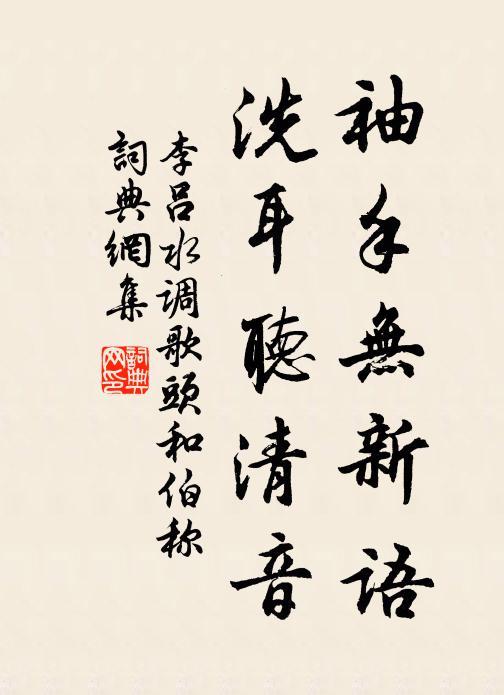 袖手無新語
洗耳聽清音
李呂水调歌頭和伯称
詞典網集
詞典
网印